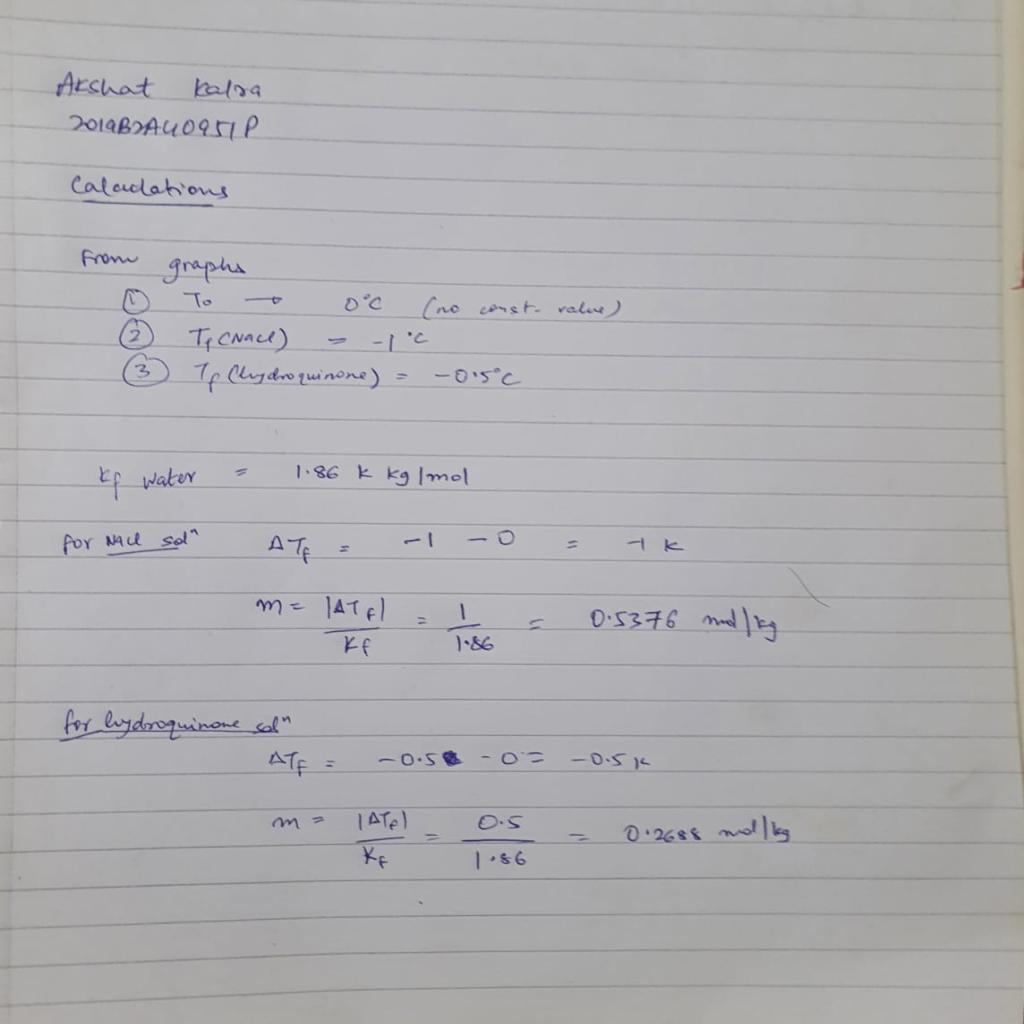 Akshat Kalra
2019B2A40951P
Calculations
From graphs
① To → 0°C (no const. value)
② Tf (NaCl) = -1 °C
③ Tf (hydroquinone) = -0.5°C
Kf water = 1.86 K kg/mol
for NaCl solⁿ ΔTf = -1 - 0 = -1 K
m = |ΔTf| / Kf = 1 / 1.86 = 0.5376 mol/kg
for hydroquinone solⁿ
ΔTf = -0.5 - 0 = -0.5 K
m = |ΔTf| / Kf = 0.5 / 1.86 = 0.2688 mol/kg